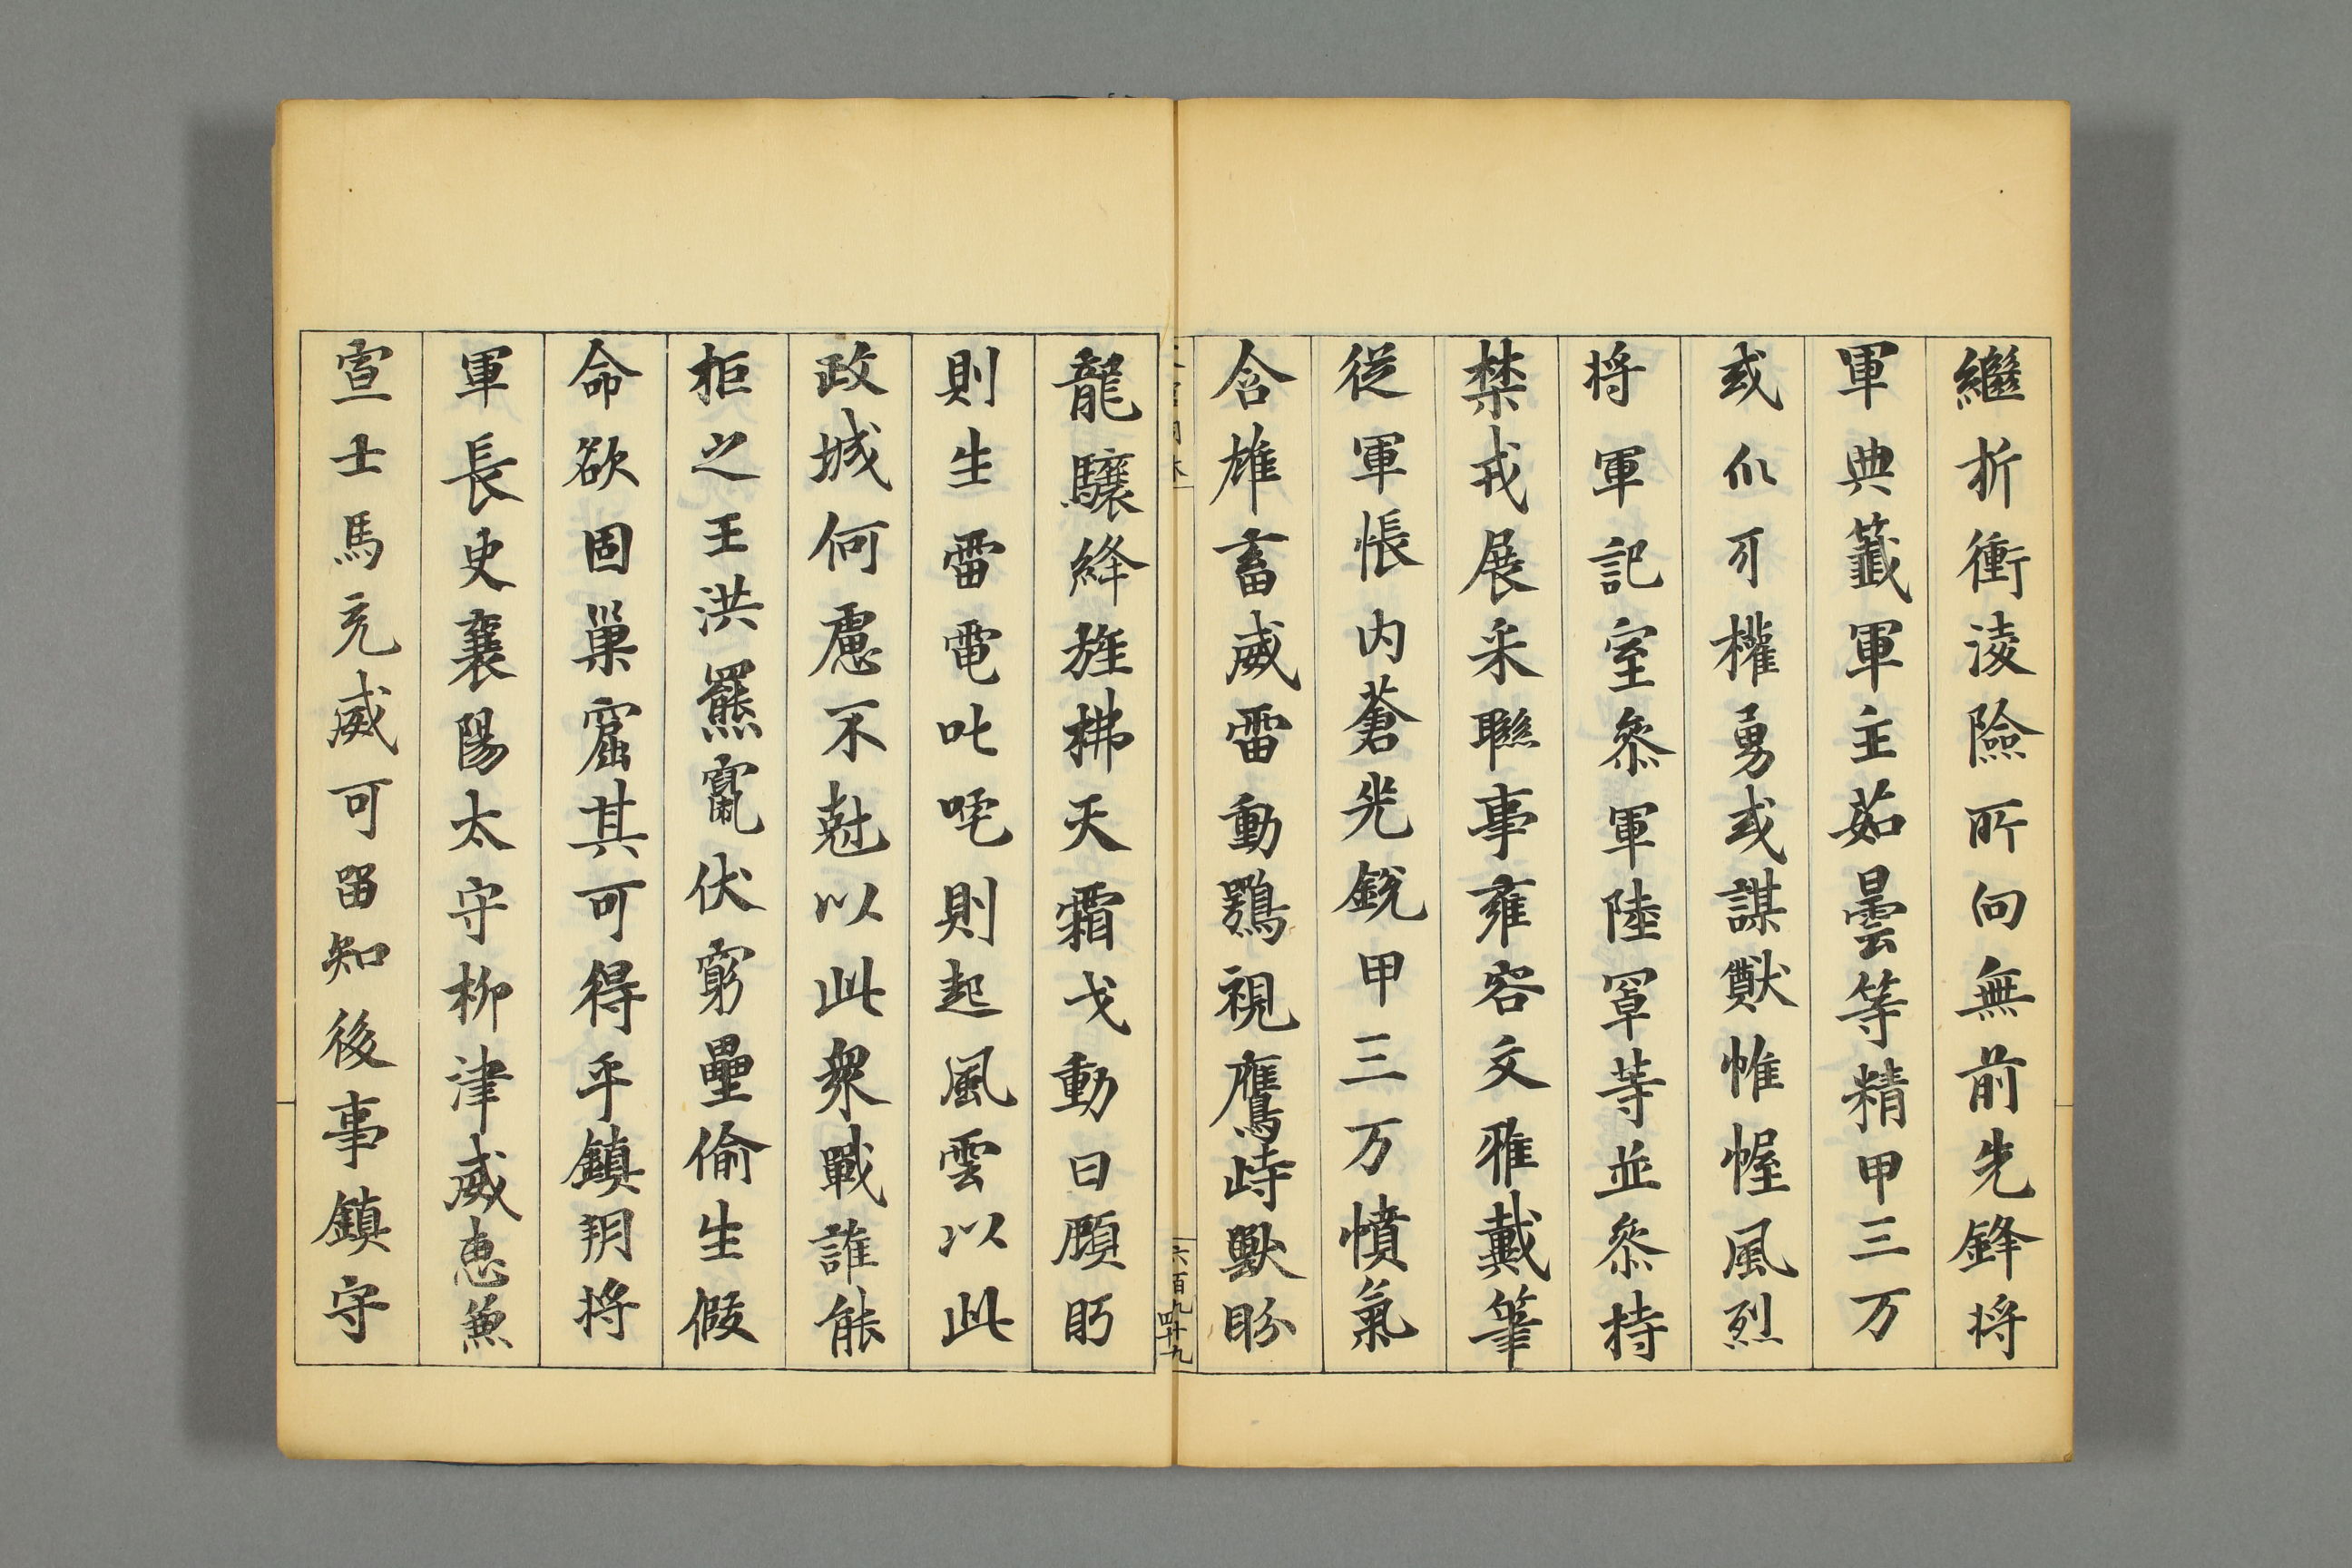 繼折衝淩險所向無前先鋒将
軍典籖軍主茹曇等精甲三万
或仈可權勇或謀猷帷幄風烈
将軍記室叅軍陸罩等並叅持
禁戎展采聮事雍容文雅戴筆
従軍帳内蒼光銳甲三万憤氣
含雄畜威雷動鶚視鷹峙獸盼
龍驤絳旌拂天霜戈動日顧眄
則生雷電叱咤則起風雲以此
攻城何慮不尅以此衆戰誰能
拒之王洪羆竄伏窮壘偷生假
命欲固巢窟其可得乎鎮朔将
軍長史襄陽太守柳津威惠兼
宣士馬充威可留知後事鎮守
六百九十九